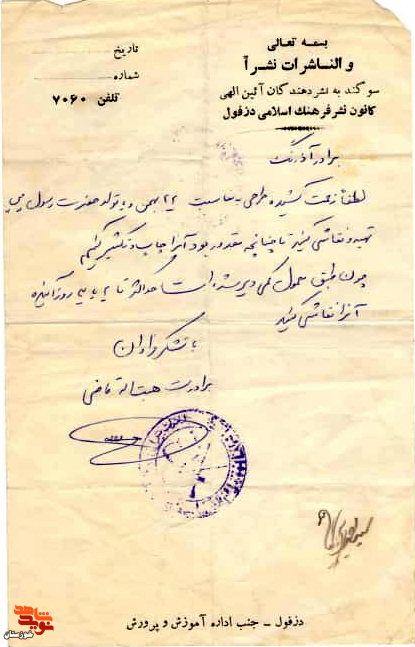 بسمه تعالی
و الناشرات نشرآ
سوگند به نشر دهندگان آئین الهی
کانون نشر فرهنگ اسلامی دزفول
تاریخ
شماره
تلفن ۷۰۶۰
برادر آذرنگ
لطفاً زحمت کشیده طرحی بمناسبت ۲۲ بهمن و یا تولد حضرت رسول
تهیه و نقاشی کنید تا چنانچه مقدور بود آنرا چاپ و تکثیر کنیم
چون طبق معمول کمی دیر شده است حداکثر تا ۲ یا ۳ روز آینده
آنرا نقاشی کنید
با تشکر فراوان
برادرت هبت‌اله قاضی
دزفول - جنب اداره آموزش و پرورش
شاهد
نوید
خوزستان